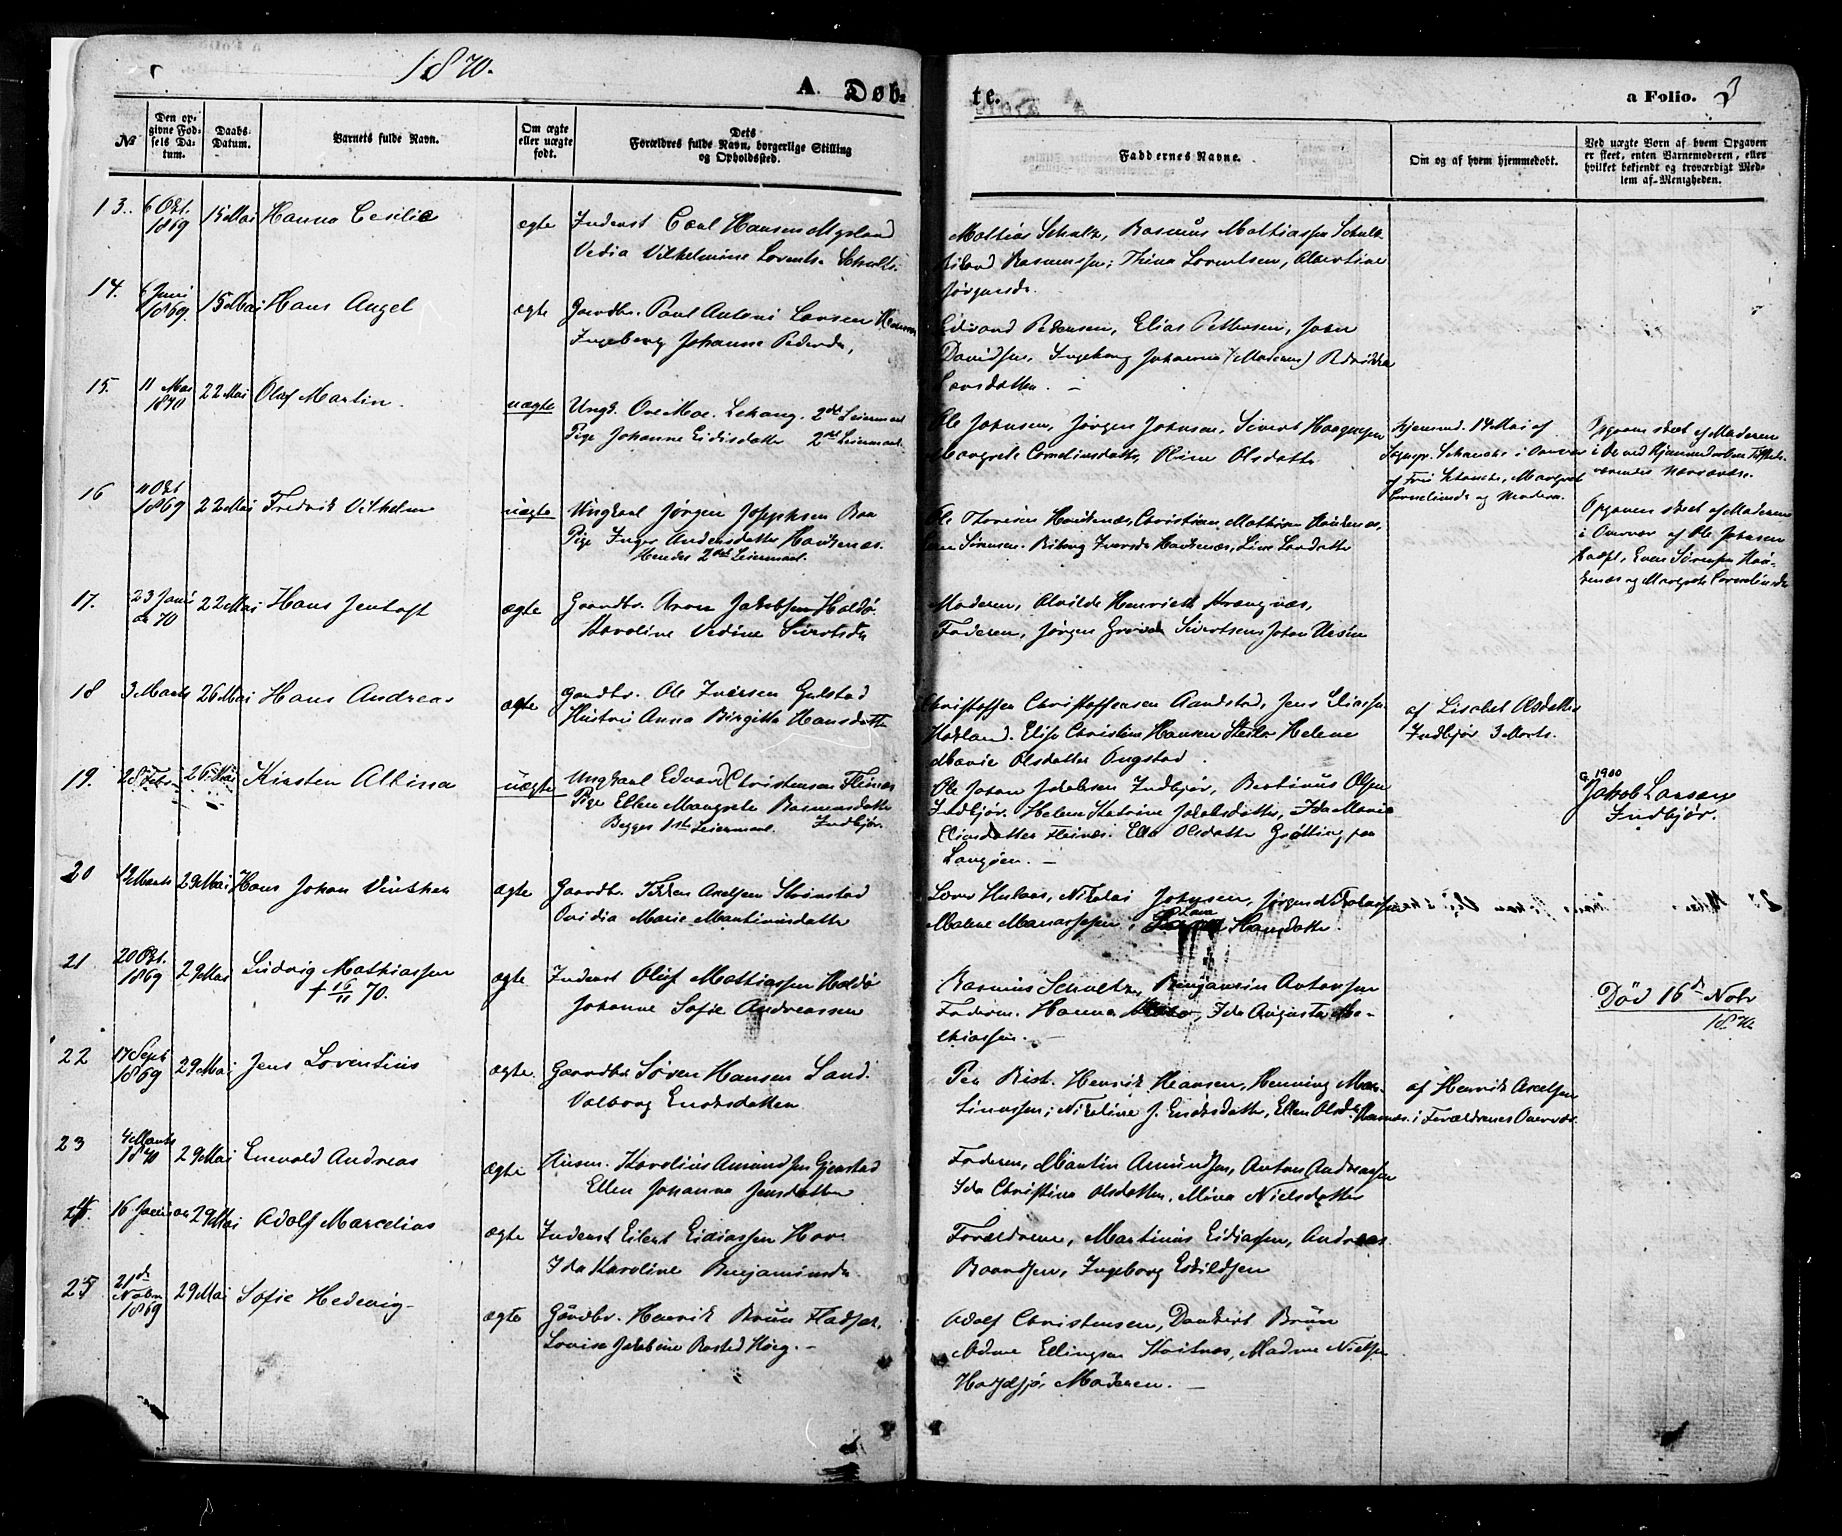 1870.
A. Døb-
te.
a Folio. 3
№
Den opgivne Fødsels Datum.
Daabs-Datum.
Barnets fulde Navn.
Om ægte eller uægte født.
Dets Forældres fulde Navn, borgerlige Stilling og Opholdssted.
Faddernes Navne.
Om og af hvem hjemmedøbt.
Ved uægte Børn af hvem Opgaven er skeet, enten Barnemoderen, eller hvilket bekjendt og troværdigt Medlem af Menigheden.
13. 6 Okt. 1869 15 Mai Hanna Cesilie ægte Inderst Carl Hansen Myrland
Vedia Vilhelmine Lorents. Schults.
Mathias Schultz, Rasmus Mathiassen Schultz
Rasmussen, Thina Lorentsen, Albertine
Jørgensd.
14. 6 Juni 1869 15 Mai Hans Angel ægte Gaardbr. Paul Antoni Larsen
Ingeborg Johanna Pedersd.
Edvard Pedersen, Elias Pettersen, John
Davidsen, Ingeborg Johanna (Moderen)
Larsdatter. —
15. 11 Mai 1870 22 Mai Olaf Martin. uægte Ungk. Ove Moe. Lekang. 2det Leiermaal
Pige Johanna Eidisdatter 2det Leiermaal.
Ole Johnsen, Jørgen Johnsen, Sivert Haagensen
Margrete Corneliusdatter, Oline Olsdatter
Hjemmed. 14 Mai af
Sognepr. Schanche i
af Fru Schanche, Margrete
Corneliusd. og Moderen.
Opgaven skeet af Moderen
i de ved Hjemmedaaben Tilstedeværendes Nærværelse.
16 11 Okt 1869 22 Mai Fredrik Vilhelm uægte Ungkarl Jørgen Josephsen
Pige Inger Andersdatter Haukenæs.
Hendes 2det Leiermaal.
Ole Thoresen Haukenæs, Christian Mathisen Haukenæs,
Sørensen. Iversd. Haukenæs, Line Larsdatter
Opgaven skeet af Moderen
i Overvær af Ole Johnsen
Even Sørensen Haukenæs og Margrete Corneliusd.
17. 23 Janu ar 70 22 Mai Hans Jentoft ægte Gaardbr. Aron Jakobsen Holdø
Karoline Vedine Sivertsda
Moderen, Alvilde Henriette Strængnæs,
Faderen, Jørgen Sivertsen, Johan
18 3 Marts 26 Mai Hans Andreas ægte Gaardbr. Ole Iversen Gulstad
Hustru Anna Birgitte Hansdatter
Christoffer Christoffersen Aandstad, Jens Eliassen
Elise Christine Hansen Helene
Marie Olsdatter Ongstad.
af Lisebet Olsdatter
Indbjør 3 Marts.
19. 28 Febr. 26 Mai Kirsten Albissa uægte Ungkarl Edvard Christensen Fleinæs
Pige Ellen Margrete Rasmusdatter
Begges 1ste Leiermaal. Indbjør.
Ole Johan Jakobsen Indbjør, Bertinus Olsen
Indbjør. Helene Katrine Jakobsdatter, Ida Marie
Eliasdatter Fleinæs. Olsdatter Grøtting paa
Langøen. —
1900
Jakob Larsen
Indbjør.
20 19 Marts 29 Mai Hans Johan Vinther ægte Gaardbr Axelsen Strønstad
Ovidia Marie Martinusdatter
Nikolai Johnsen, Jørgen Nikolaisen
Malene Manassesen, Lava Hansdatter.
21 20 Okt. 1869 29 Mai Ludvig Mathiassen
† 16/11 70.
ægte Inderst Oluf Mathiassen Holdø
Johanne Sofie Andreassen
Rasmus Schultz, Benjamin Antonsen
Faderen. Hanna Ida Augusta Mathiassen. —
Død 16d Nobr
1870
22 17 Sept 1869 29 Mai Jens Lorentius ægte. Gaardbr Søren Hansen Sand.
Valborg Enoksdatter
Per Rist. Henrik Hansen, Henning Martinussen, Nikoline J. Enoksdatter, Ellen Olsd.
af Henrik Axelsen
i Forældrenes Overvær.
23 4 Marts 1870 29 Mai Enevold Andreas ægte Husm. Karolius Amundsen Gjerstad
Ellen Johanna Jensdatter
Faderen, Martin Amundsen, Anton Andreassen
Ida Christina Olsdatter, Mina Nielsdatter
24. 16 Januar 29 Mai Adolf Marcelius ægte Inderst Eilert Eidiassen Hov
Ida Karoline Benjaminsda
Forældrene, Martinus Eidiassen, Andreas
Baardsen, Ingeborg Eskildsen
25 21d Nobm 1869 29 Mai Sofie Hedevig. ægte Gårdbr. Henrik Bruun Fladset,
Lovise Jakobine Rosted Høeg. —
Adolf Christensen, Dankert Bruun
Madme Ellingsen Kvitnæs, Madme Nielsen
Moderen. —